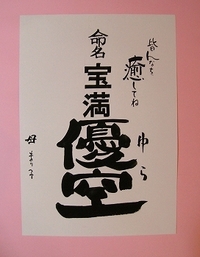 皆んなを
癒してね
命名
宝満
優空
ゆら
母